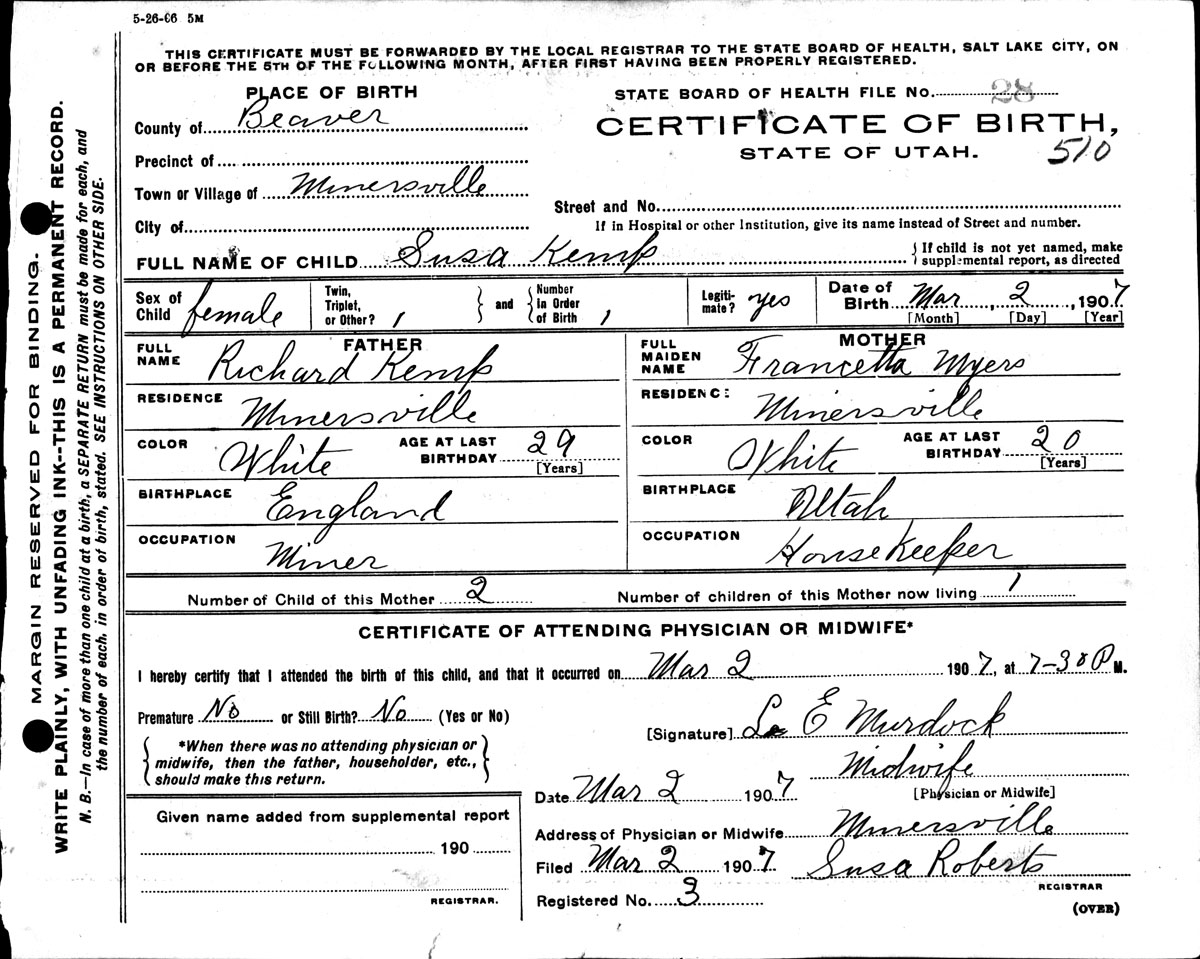 5-26-06 5M
THIS CERTIFICATE MUST BE FORWARDED BY THE LOCAL REGISTRAR TO THE STATE BOARD OF HEALTH, SALT LAKE CITY, ON
OR BEFORE THE 5TH OF THE FOLLOWING MONTH, AFTER FIRST HAVING BEEN PROPERLY REGISTERED.
PLACE OF BIRTH
County of Beaver
Precinct of
Town or Village of Minersville
City of
STATE BOARD OF HEALTH FILE No. 28
CERTIFICATE OF BIRTH,
STATE OF UTAH. 510
Street and No.
If in Hospital or other Institution, give its name instead of Street and number.
FULL NAME OF CHILD Susa Kemp { If child is not yet named, make
supplemental report, as directed
Sex of
Child female
Twin,
Triplet,
or Other? 1 } and { Number
in Order
of Birth 1
Legiti-
mate? yes
Date of
Birth Mar, 2, 1907
[Month] [Day] [Year]
FATHER
FULL
NAME Richard Kemp
RESIDENCE Minersville
COLOR White AGE AT LAST
BIRTHDAY 29
[Years]
BIRTHPLACE England
OCCUPATION Miner
MOTHER
FULL
MAIDEN
NAME Francetta Myers
RESIDENCE Minersville
COLOR White AGE AT LAST
BIRTHDAY 20
[Years]
BIRTHPLACE Utah
OCCUPATION Housekeeper
Number of Child of this Mother 2 Number of children of this Mother now living 1
CERTIFICATE OF ATTENDING PHYSICIAN OR MIDWIFE*
I hereby certify that I attended the birth of this child, and that it occurred on Mar 2 1907, at 7-30 P M.
Premature No or Still Birth? No (Yes or No)
{ *When there was no attending physician or
midwife, then the father, householder, etc.,
should make this return. }
[Signature] E Murdock
Midwife
[Physician or Midwife]
Date Mar 2 1907
Address of Physician or Midwife Minersville
Filed Mar 2 1907 Susa Roberts
REGISTRAR
Registered No. 3
(OVER)
Given name added from supplemental report
190
REGISTRAR.
MARGIN RESERVED FOR BINDING.
WRITE PLAINLY, WITH UNFADING INK--THIS IS A PERMANENT RECORD.
N. B.—In case of more than one child at a birth, a SEPARATE RETURN must be made for each, and
the number of each, in order of birth, stated. SEE INSTRUCTIONS ON OTHER SIDE.